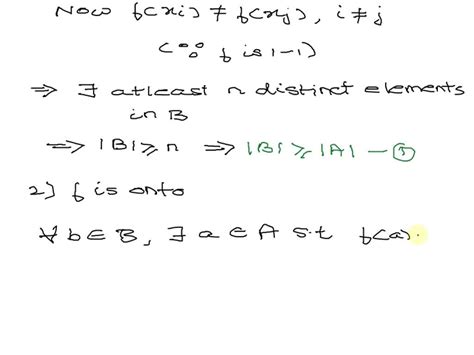 Now f(xi) ≠ f(xj), i ≠ j
(∵ f is 1-1)
⇒ ∃ atleast n distinct elements
in B
⇒ |B| ⩾ n ⇒ |B| ⩾ |A| — ①
2) f is onto
∀ b ∈ B, ∃ a ∈ A s.t f(a)